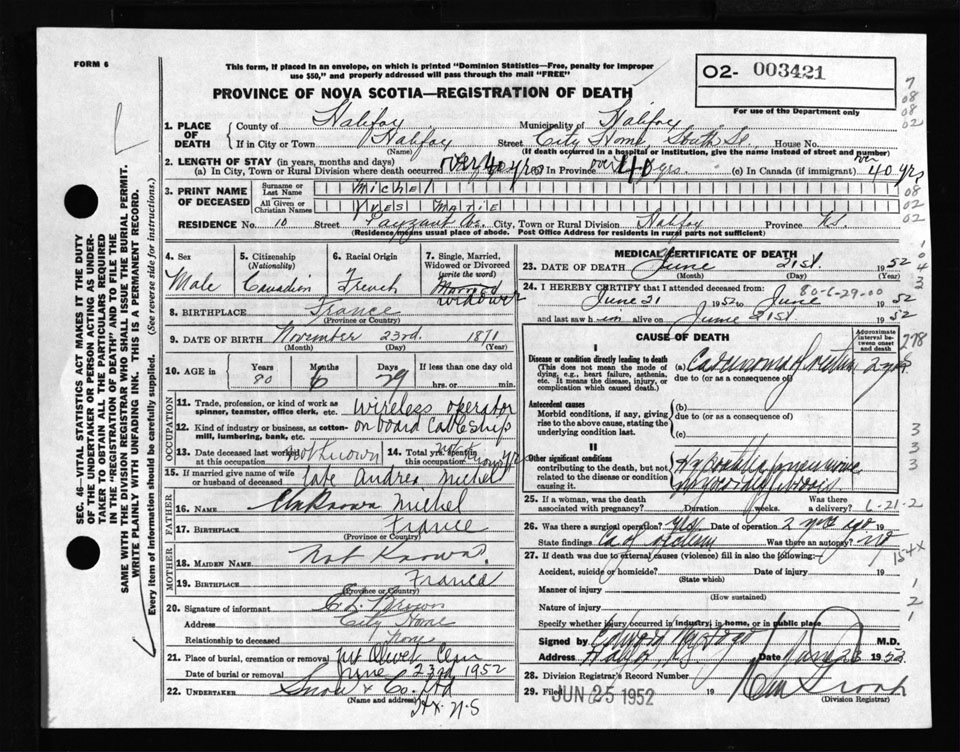 FORM 6
This form, if placed in an envelope, on which is printed "Dominion Statistics—Free, penalty for improper
use $50," and properly addressed will pass through the mail "FREE"
PROVINCE OF NOVA SCOTIA—REGISTRATION OF DEATH
O2- 003421
For use of the Department only
7
08
08
02
1. PLACE OF DEATH
County of Halifax Municipality of Halifax
If in City or Town Halifax Street City Home South St. House No.
(Name) (If death occurred in a hospital or institution, give the name instead of street and number)
2. LENGTH OF STAY (in years, months and days)
(a) In City, Town or Rural Division where death occurred over 40 yrs (b) In Province over 40 yrs. (c) In Canada (if immigrant) over 40 yrs
3. PRINT NAME OF DECEASED
Surname or Last Name MICHEL
All Given or Christian Names YVES MARIE
08
02
02
RESIDENCE No. 10 Street Payzant Ave. City, Town or Rural Division Halifax Province N.S.
(Residence means usual place of abode. Post Office Address for residents in rural parts not sufficient)
4. Sex Male
5. Citizenship (Nationality) Canadian
6. Racial Origin French
7. Single, Married, Widowed or Divorced (write the word) Married widower
8. BIRTHPLACE France
(Province or Country)
9. DATE OF BIRTH November 23rd. 1871
(Month) (Day) (Year)
10. AGE in Years 80 Months 6 Days 29 If less than one day old
hrs. or min.
OCCUPATION
11. Trade, profession or kind of work as spinner, teamster, office clerk, etc. wireless operator
12. Kind of industry or business, as cotton-mill, lumbering, bank, etc. on board cableship
13. Date deceased last worked at this occupation not known
14. Total yrs. spent in this occupation not
15. If married give name of wife or husband of deceased late Andrea Michel
FATHER
16. Name Unknown Michel
17. Birthplace France
(Province or Country)
MOTHER
18. Maiden Name Not Known
19. Birthplace France
(Province or Country)
20. Signature of informant Brown
Address City Home
Relationship to deceased none
21. Place of burial, cremation or removal Mt Olivet Cem
Date of burial or removal June 23rd 1952
22. UNDERTAKER Snow & Co. Ltd
(Name and address)
Hx. N.S
MEDICAL CERTIFICATE OF DEATH
23. DATE OF DEATH June 21st. 1952
(Month) (Day) (Year)
24. I HEREBY CERTIFY that I attended deceased from: 80-6-29-00
June 21 1952 to June 1952
and last saw him alive on June 21st 1952
CAUSE OF DEATH
Approximate interval between onset and death
I
Disease or condition directly leading to death
(This does not mean the mode of dying, e.g., heart failure, asthenia, etc. It means the disease, injury, or complication which caused death.)
(a) Carcinoma 2 yrs
due to (or as a consequence of)
Antecedent causes
Morbid conditions, if any, giving rise to the above cause, stating the underlying condition last.
(b)
due to (or as a consequence of)
(c)
II
Other significant conditions
contributing to the death, but not related to the disease or condition causing it.
Hypostatic pneumonia
25. If a woman, was the death associated with pregnancy? Duration weeks. Was there a delivery? 6-21-2
26. Was there a surgical operation? yes Date of operation 2 yrs ago
State findings Was there an autopsy? no
154x
27. If death was due to external causes (violence) fill in also the following:
Accident, suicide or homicide? Date of injury 19
(State which)
Manner of injury
(How sustained)
Nature of injury
Specify whether injury occurred in industry, in home, or in public place
Signed by M.D.
Address Halifax Date June 23 1952
28. Division Registrar's Record Number
29. Filed JUN 25 1952 19
(Division Registrar)
SEC. 46—VITAL STATISTICS ACT MAKES IT THE DUTY
OF THE UNDERTAKER OR PERSON ACTING AS UNDER-
TAKER TO OBTAIN ALL THE PARTICULARS REQUIRED
IN THE "REGISTRATION OF DEATH" AND TO FILE THE
SAME WITH THE DIVISION REGISTRAR WHO SHALL ISSUE THE BURIAL PERMIT.
WRITE PLAINLY WITH UNFADING INK. THIS IS A PERMANENT RECORD.
Every item of information should be carefully supplied. (See reverse side for instructions.)